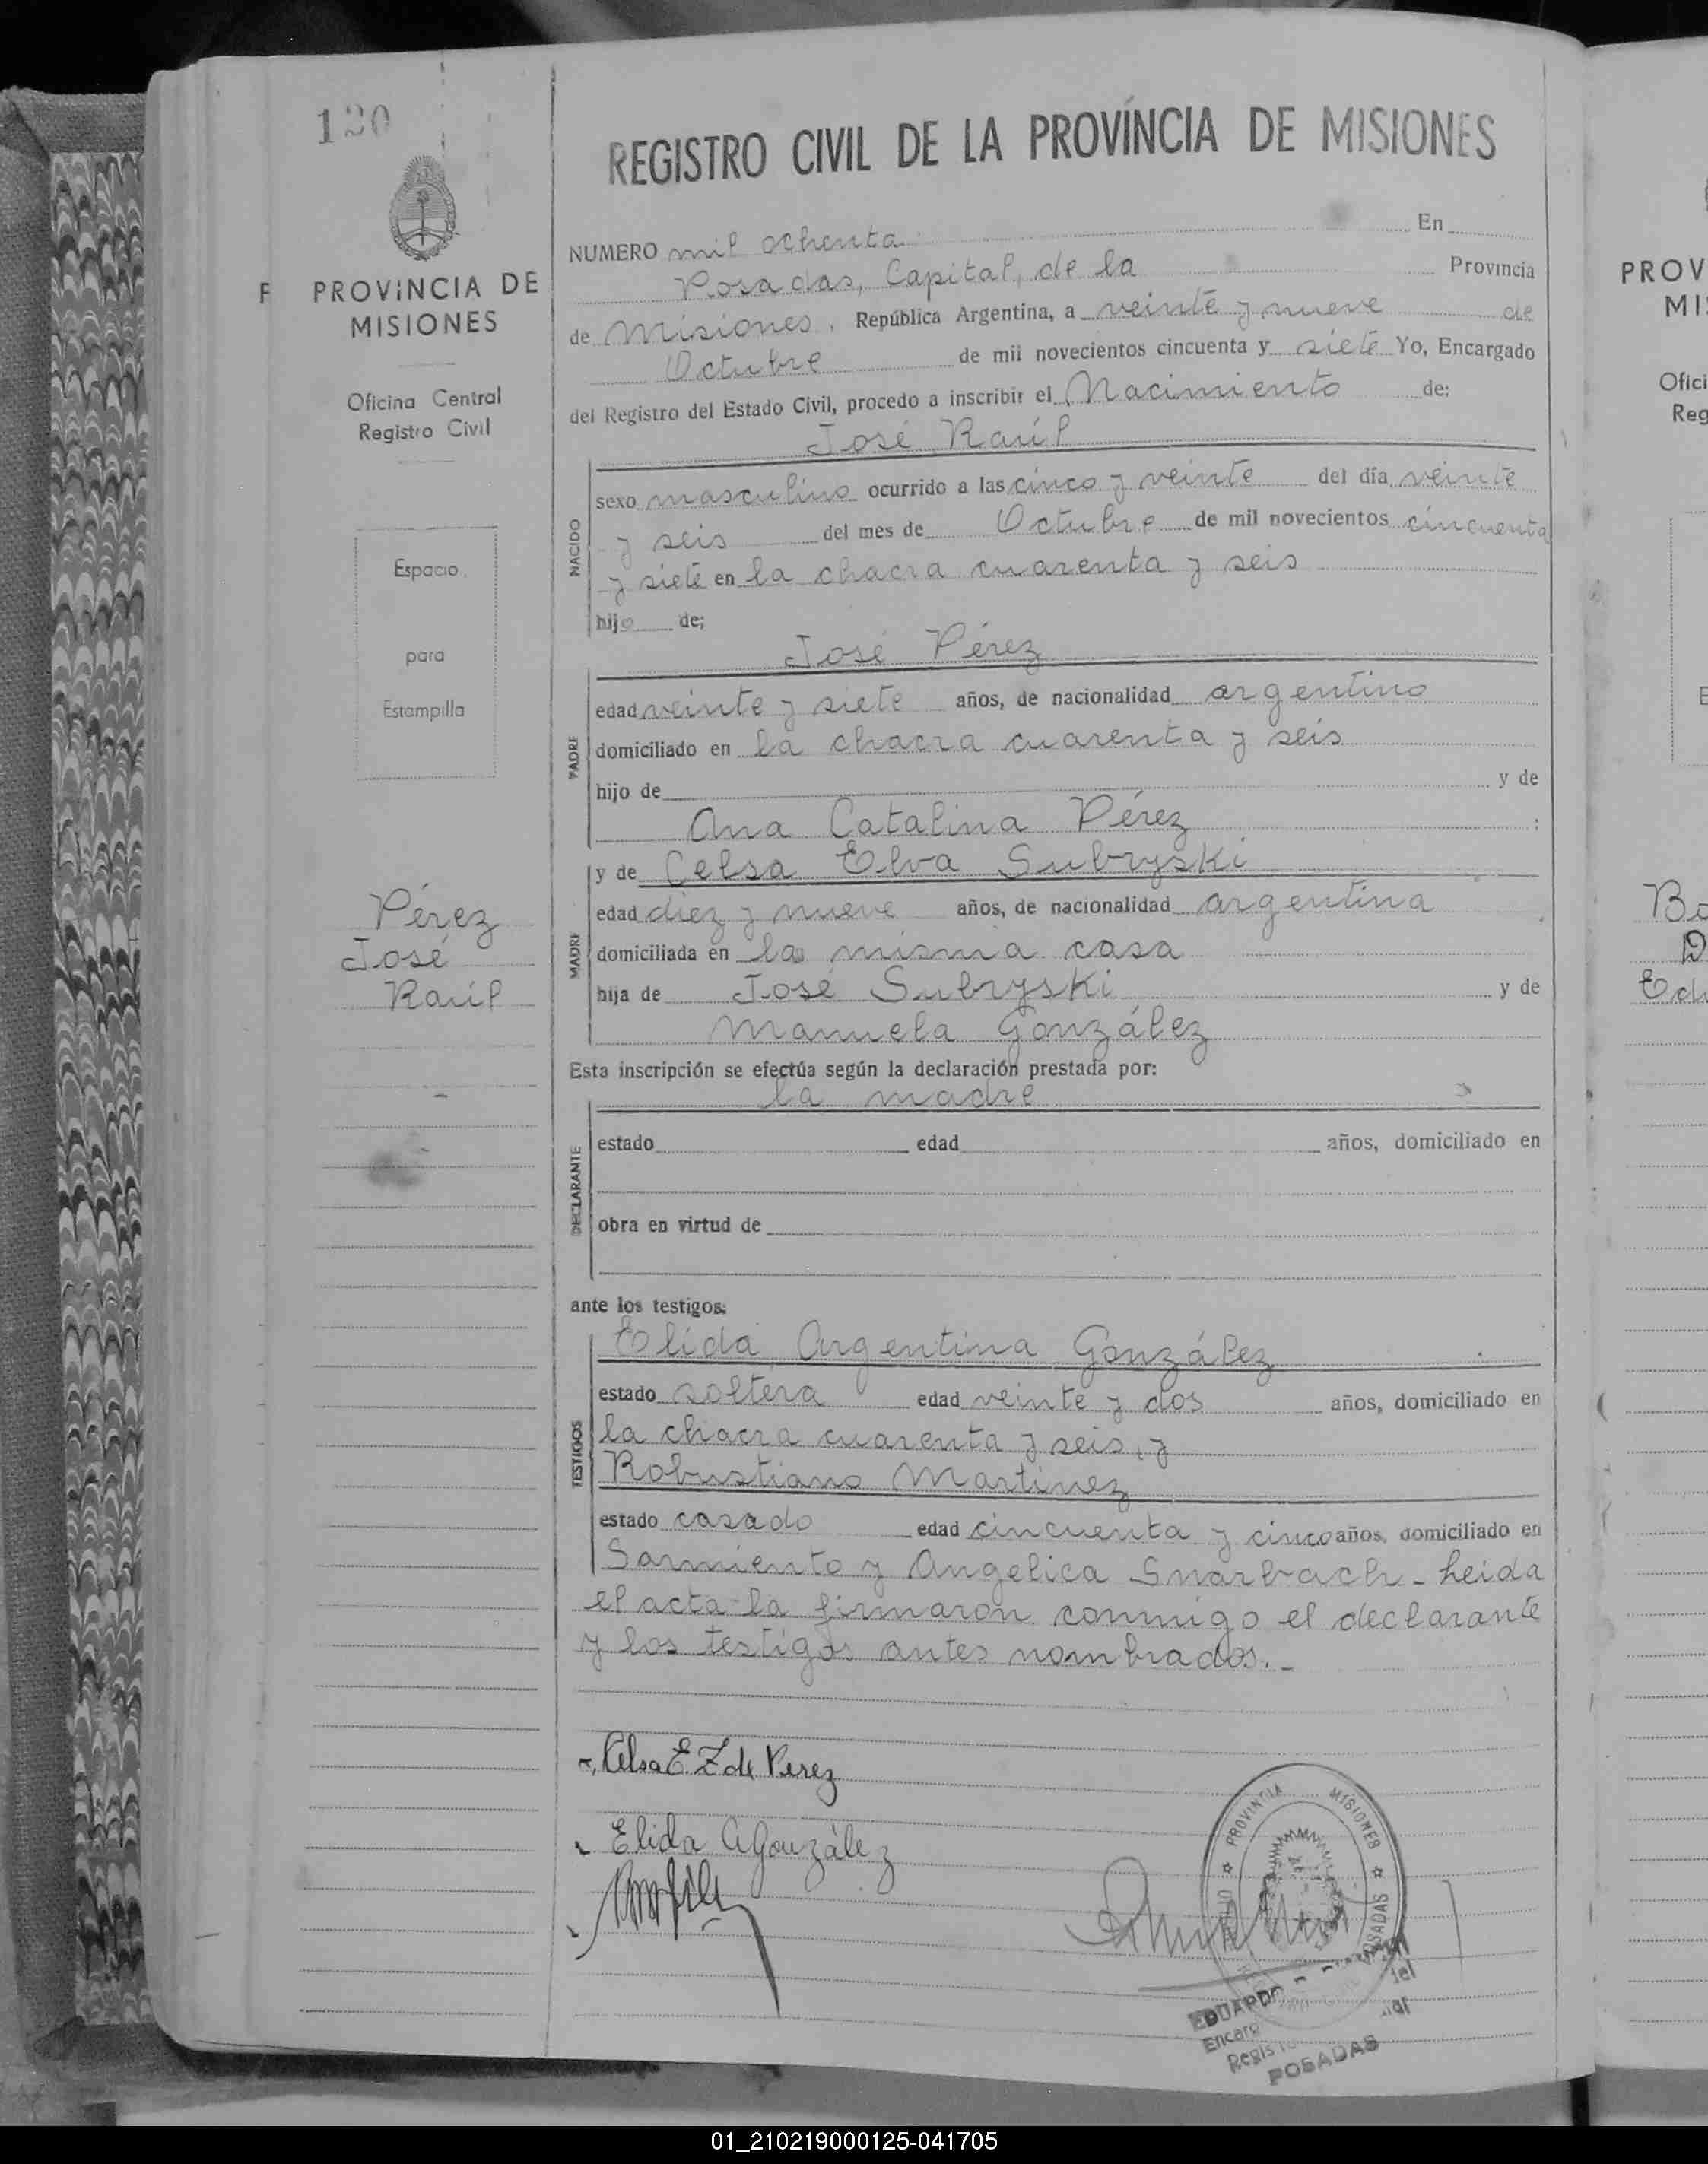 120
REGISTRO CIVIL DE LA PROVINCIA DE MISIONES
F PROVINCIA DE
MISIONES
Oficina Central
Registro Civil
Espacio
para
Estampilla
Pérez
José
Raúl
NUMERO mil ochenta En
Posadas, Capital, de la Provincia
de Misiones, República Argentina, a veinte y nueve de
Octubre de mil novecientos cincuenta y siete Yo, Encargado
del Registro del Estado Civil, procedo a inscribir el Nacimiento de:
José Raúl
NACIDO
sexo masculino ocurrido a las cinco y veinte del día veinte
y seis del mes de Octubre de mil novecientos cincuenta
y siete en la chacra cuarenta y seis
hijo de;
José Pérez
PADRE
edad veinte y siete años, de nacionalidad argentino
domiciliado en la chacra cuarenta y seis
hijo de y de
Ana Catalina Pérez ;
y de Celsa Elva Subryski
MADRE
edad diez y nueve años, de nacionalidad argentina
domiciliada en la misma casa
hija de José Subryski y de
Manuela González
Esta inscripción se efectúa según la declaración prestada por:
la madre
DECLARANTE
estado edad años, domiciliado en
obra en virtud de
ante los testigos:
Elida Argentina González
TESTIGOS
estado soltera edad veinte y dos años, domiciliado en
la chacra cuarenta y seis, y
Robustiano Martinez
estado casado edad cincuenta y cinco años, domiciliado en
Sarmiento y Angelica Snarbach - Leida
el acta la firmaron conmigo el declarante
y los testigos antes nombrados.-
Celsa E. Z de Perez
Elida A González
PROVINCIA MISIONES
POSADAS
EDUARDO
Encarg
Regis
POSADAS
PROV
MI
Ofici
Reg
E
Bo
D
Edu
01_210219000125-041705